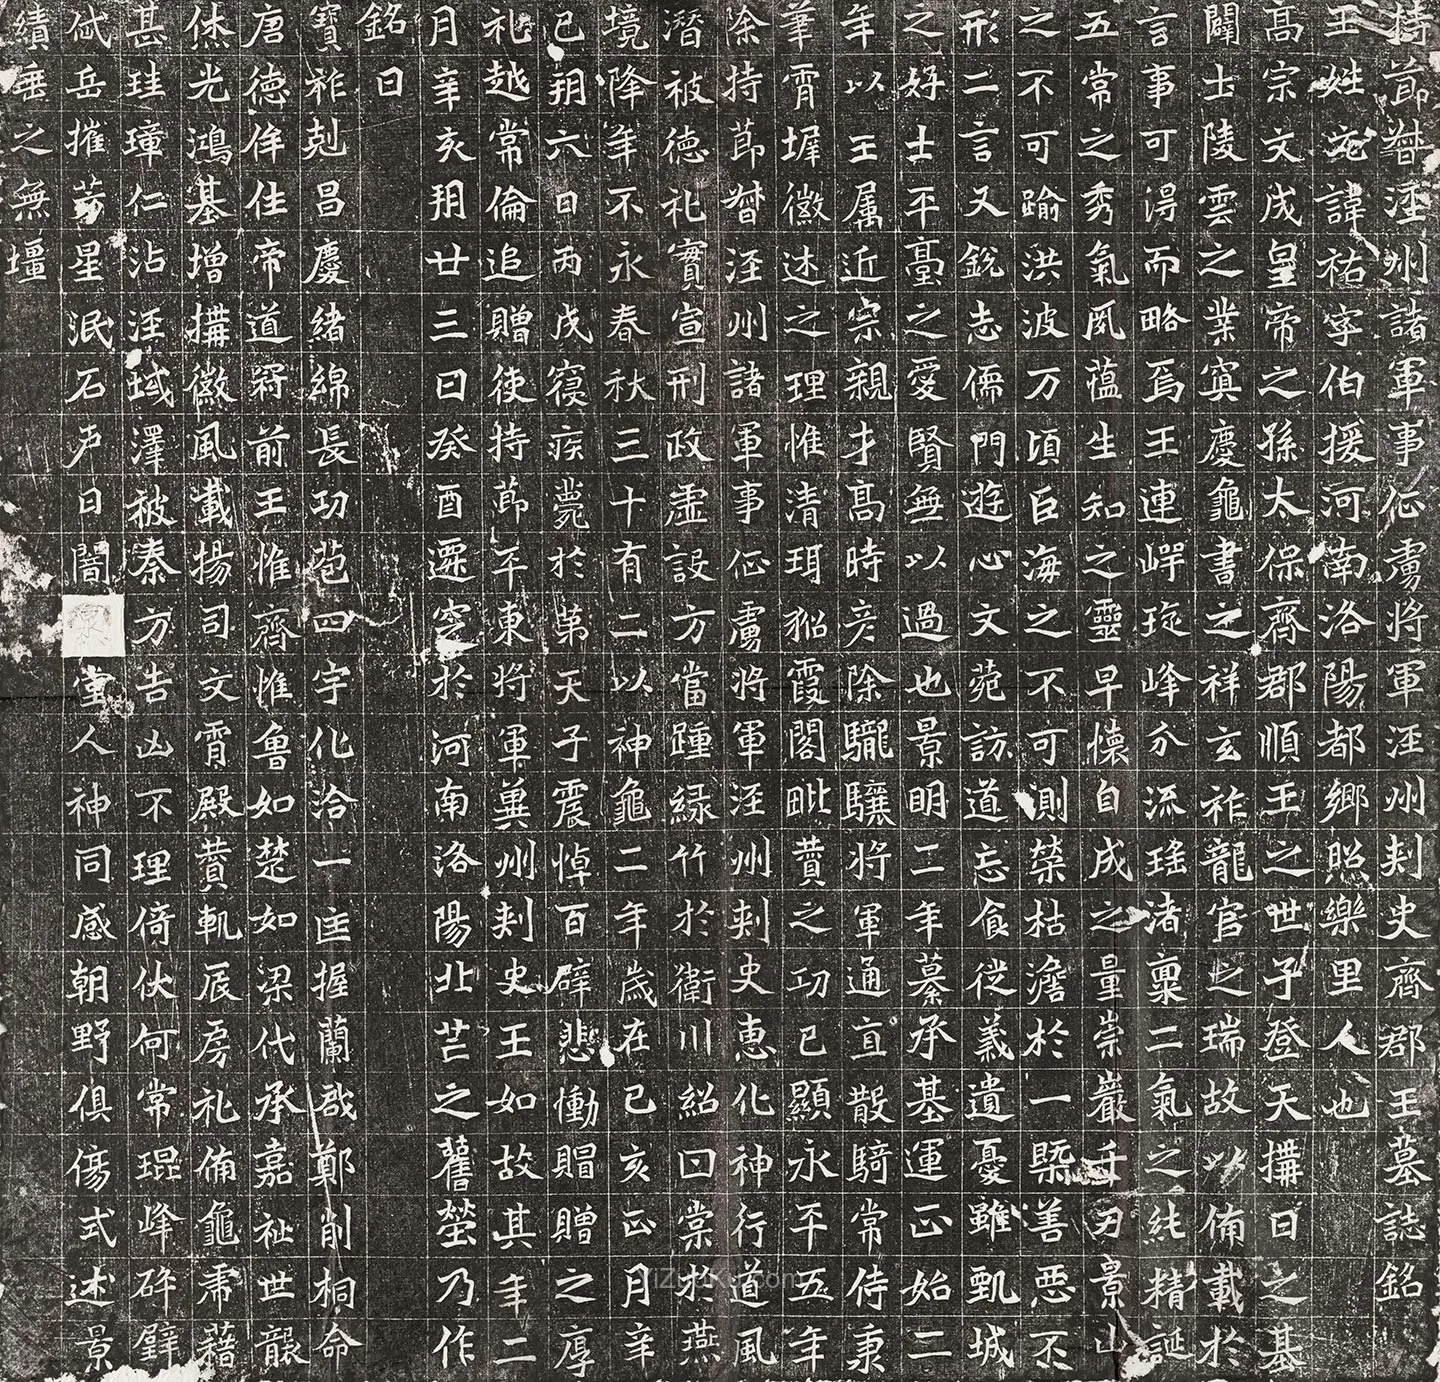 持節督涇州諸軍事征虜將軍涇州刺史齊郡王墓誌銘
王姓元諱祐字伯援河南洛陽都鄉照樂里人也
高宗文成皇帝之孫太保齊郡順王之世子登天構日之基
闢土陵雲之業寅慶龜書之祥玄祚龍官之瑞故以備載於
言事可得而略焉王連崿琁峰分流瑤渚稟二氣之純精誕
五常之秀氣風蘊生知之靈早懷自成之量崇巖千刃景山
之不可踰洪波万頃巨海之不可測榮枯澹於一槩善惡不
形二言又銳志儒門遊心文菀訪道忘食從義遺憂雖甄城
之好士平臺之愛賢無以過也景明二年纂承基運正始二
年以王属近宗親才高時彥除驪驤將軍通直散騎常侍秉
筆霄墀徽述之理惟清珥貂霞閣毗贊之功已顯永平五年
除持節督涇州諸軍事征虜將軍涇州刺史惠化神行道風
潛被德礼實宣刑政虛設方當踵綠竹於衛川紹曰棠於燕
境降年不永春秋三十有二以神龜二年歲在己亥正月辛
巳朔六日丙戌寢疾薨於第天子震悼百辟悲慟賵贈之厚
礼越常倫追贈使持節平東將軍冀州刺史王如故其年二
月辛亥朔廿三日癸酉遷窆於河南洛陽北芒之舊塋乃作
銘曰
寶祚剋昌慶緒綿長功苞四宇化洽一匡握蘭啟鄭削桐命
唐德侔住帝道冠前王惟齊惟魯如楚如梁代承嘉祉世襲
烋光鴻基增構徽風載揚司文霄殿贊軌辰房礼備龜常藉
甚珪璋仁沾涇域澤被秦方吉凶不理倚伏何常琨峰碎璧
岱岳摧芳星泯石戶日闇泉堂人神同感朝野俱傷式述景
績垂之無壃
YiZuKu.com